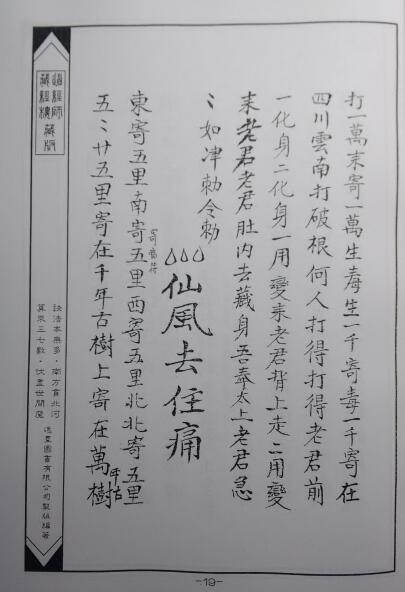 打一萬末寄一萬生毒生一千寄毒一千寄在
四川雲南打破根何人打得打得老君前
一化身二化身一用變來老君背上走二用變
來老君老君肚內去藏身吾奉太上老君急
〻如津勅令勅
仙風去住痛
寄痛符
東寄五里南寄五里西寄五里北北寄五里
五〻廿五里寄在千年古樹上寄在萬年古樹
道經師
藏經樓藏版
訣法本無多·南方貫北河
算來三七數·伏盡世間魔
逸群圖書有限公司製版編著
-19-